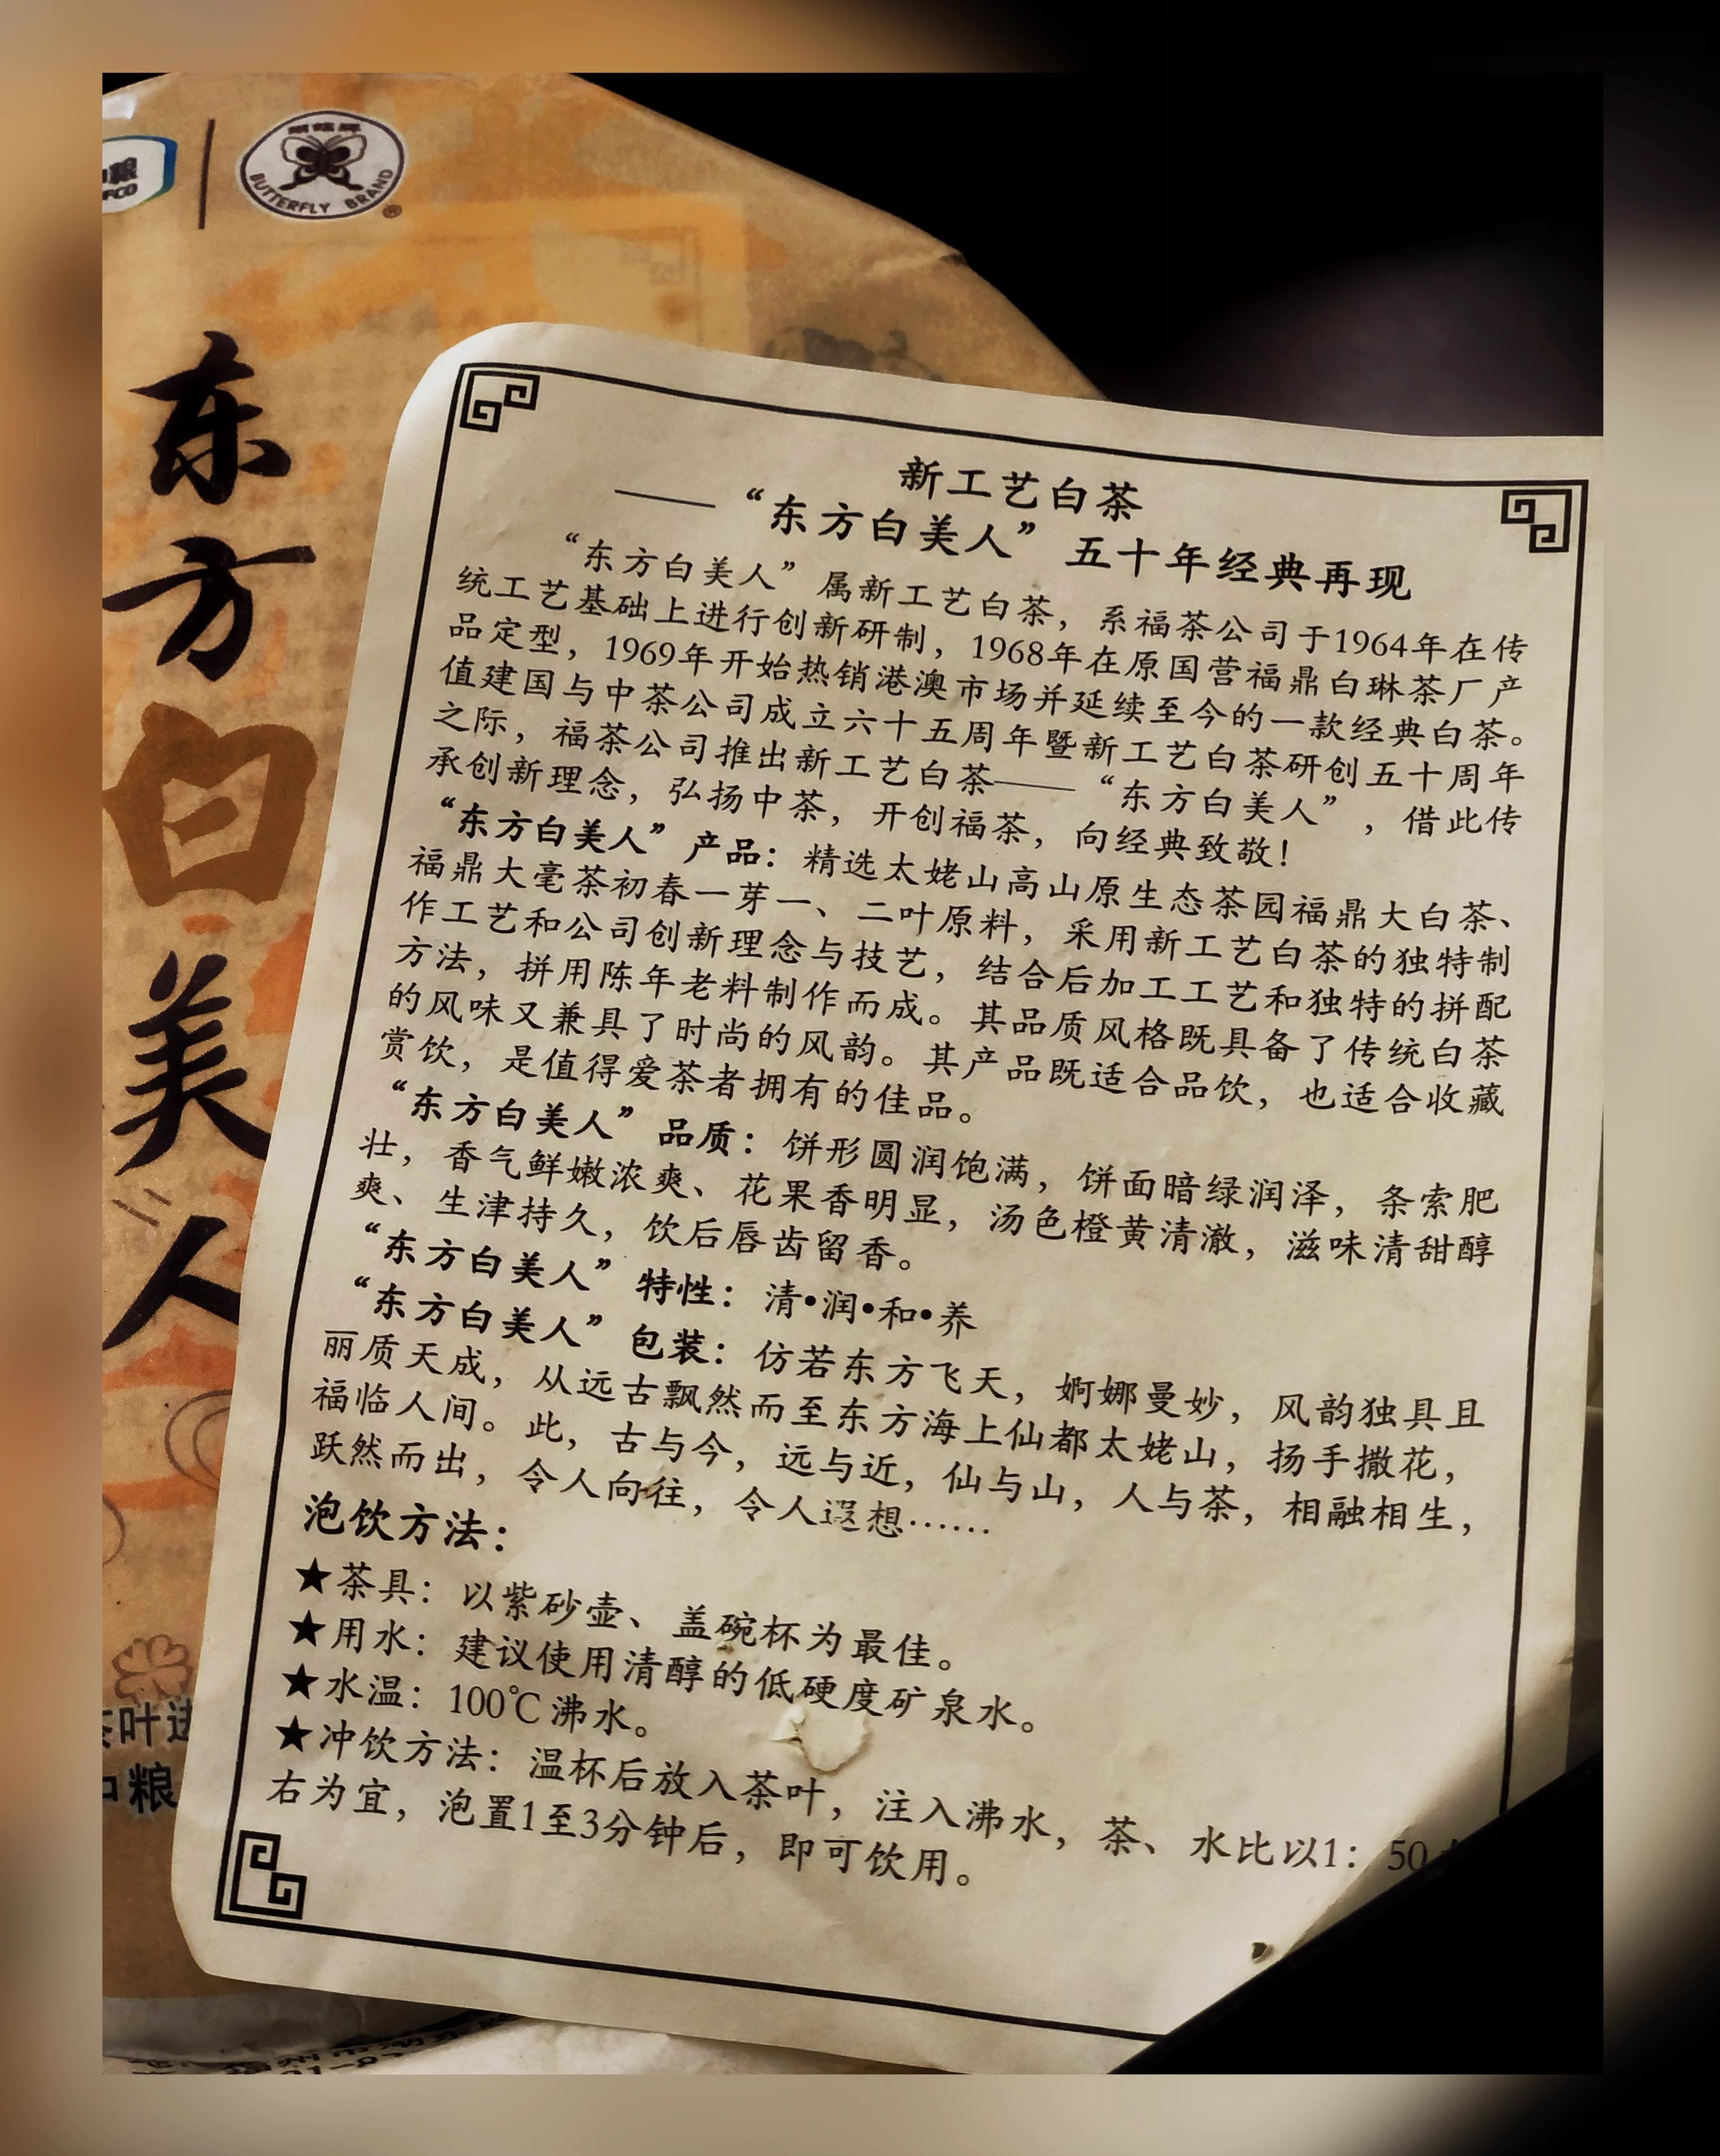 BUTTERFLY BRAND
东方白美人
新工艺白茶
——“东方白美人”五十年经典再现
“东方白美人”属新工艺白茶，系福茶公司于1964年在传
统工艺基础上进行创新研制，1968年在原国营福鼎白琳茶厂产
品定型，1969年开始热销港澳市场并延续至今的一款经典白茶。
值建国与中茶公司成立六十五周年暨新工艺白茶研创五十周年
之际，福茶公司推出新工艺白茶——“东方白美人”，借此传
承创新理念，弘扬中茶，开创福茶，向经典致敬！
“东方白美人”产品：精选太姥山高山原生态茶园福鼎大白茶、
福鼎大毫茶初春一芽一、二叶原料，采用新工艺白茶的独特制
作工艺和公司创新理念与技艺，结合后加工工艺和独特的拼配
方法，拼用陈年老料制作而成。其品质风格既具备了传统白茶
的风味又兼具了时尚的风韵。其产品既适合品饮，也适合收藏
赏饮，是值得爱茶者拥有的佳品。
“东方白美人”品质：饼形圆润饱满，饼面暗绿润泽，条索肥
壮，香气鲜嫩浓爽、花果香明显，汤色橙黄清澈，滋味清甜醇
爽、生津持久，饮后唇齿留香。
“东方白美人”特性：清•润•和•养
“东方白美人”包装：仿若东方飞天，婀娜曼妙，风韵独具且
丽质天成，从远古飘然而至东方海上仙都太姥山，扬手撒花，
福临人间。此，古与今，远与近，仙与山，人与茶，相融相生，
跃然而出，令人向往，令人遐想……
泡饮方法：
★茶具：以紫砂壶、盖碗杯为最佳。
★用水：建议使用清醇的低硬度矿泉水。
★水温：100℃沸水。
★冲饮方法：温杯后放入茶叶，注入沸水，茶、水比以1：50
右为宜，泡置1至3分钟后，即可饮用。
茶叶进
中粮